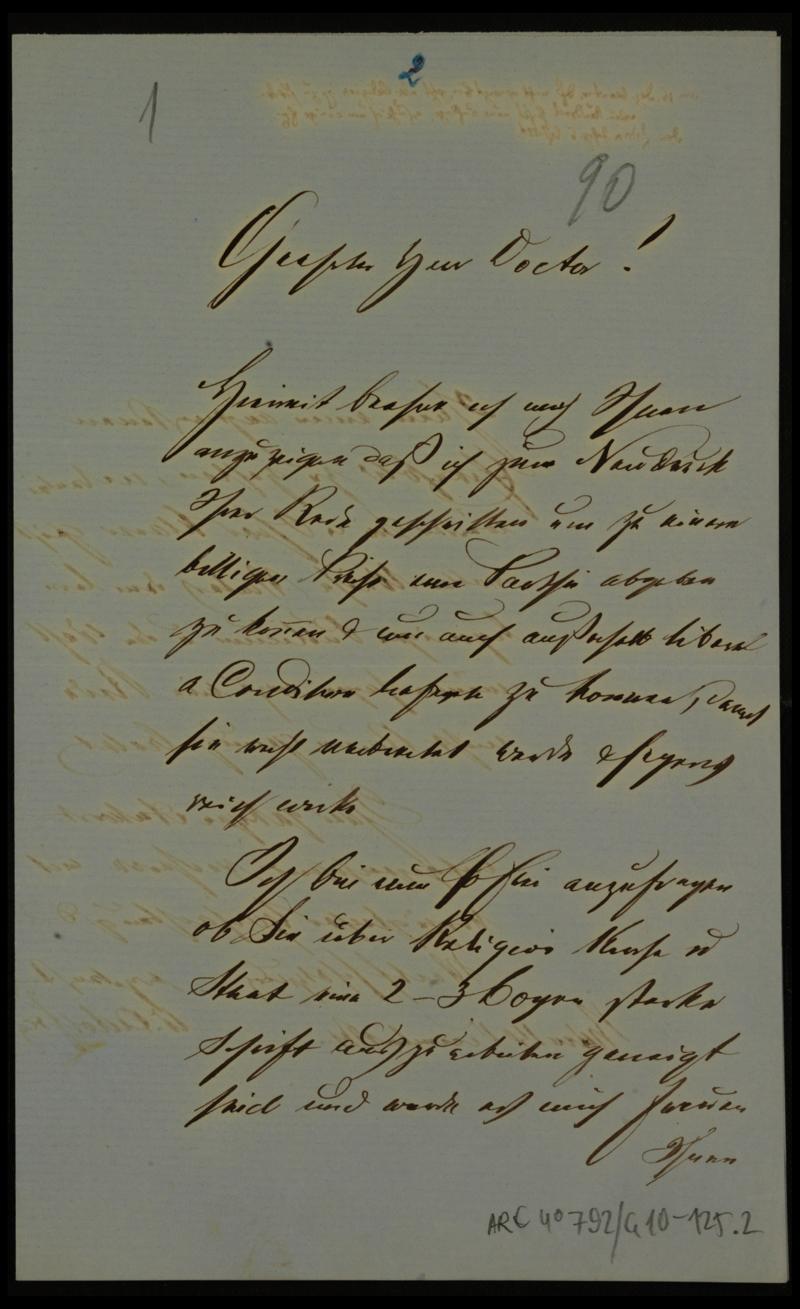 2
1
90
Geehrter Herr Doctor!
Hiermit beehre ich mich Ihnen
anzuzeigen daß ich zum Neudruck
Ihrer Rede geschritten um zu einem
billigen Preise um Parthie abgeben
zu können & um auch außerhalb liberal
a Condition liefern zu können, damit
sie recht verbreitet werde & segens
reich wirke
Ich bin nun so frei anzufragen
ob Sie über Religion Kirche u
Staat eine 2-3 Bogen starke
Schrift auszuarbeiten geneigt
seid und werde es mich freuen
Ihnen
ARC 4° 792/G10-125.2